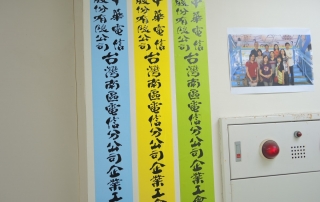 中華電信
股份有限公司
台灣南區電信分公司企業工會
中華電信
股份有限公司
台灣南區電信分公司企業工會
中華電信
股份有限公司
台灣南區電信分公司企業工會